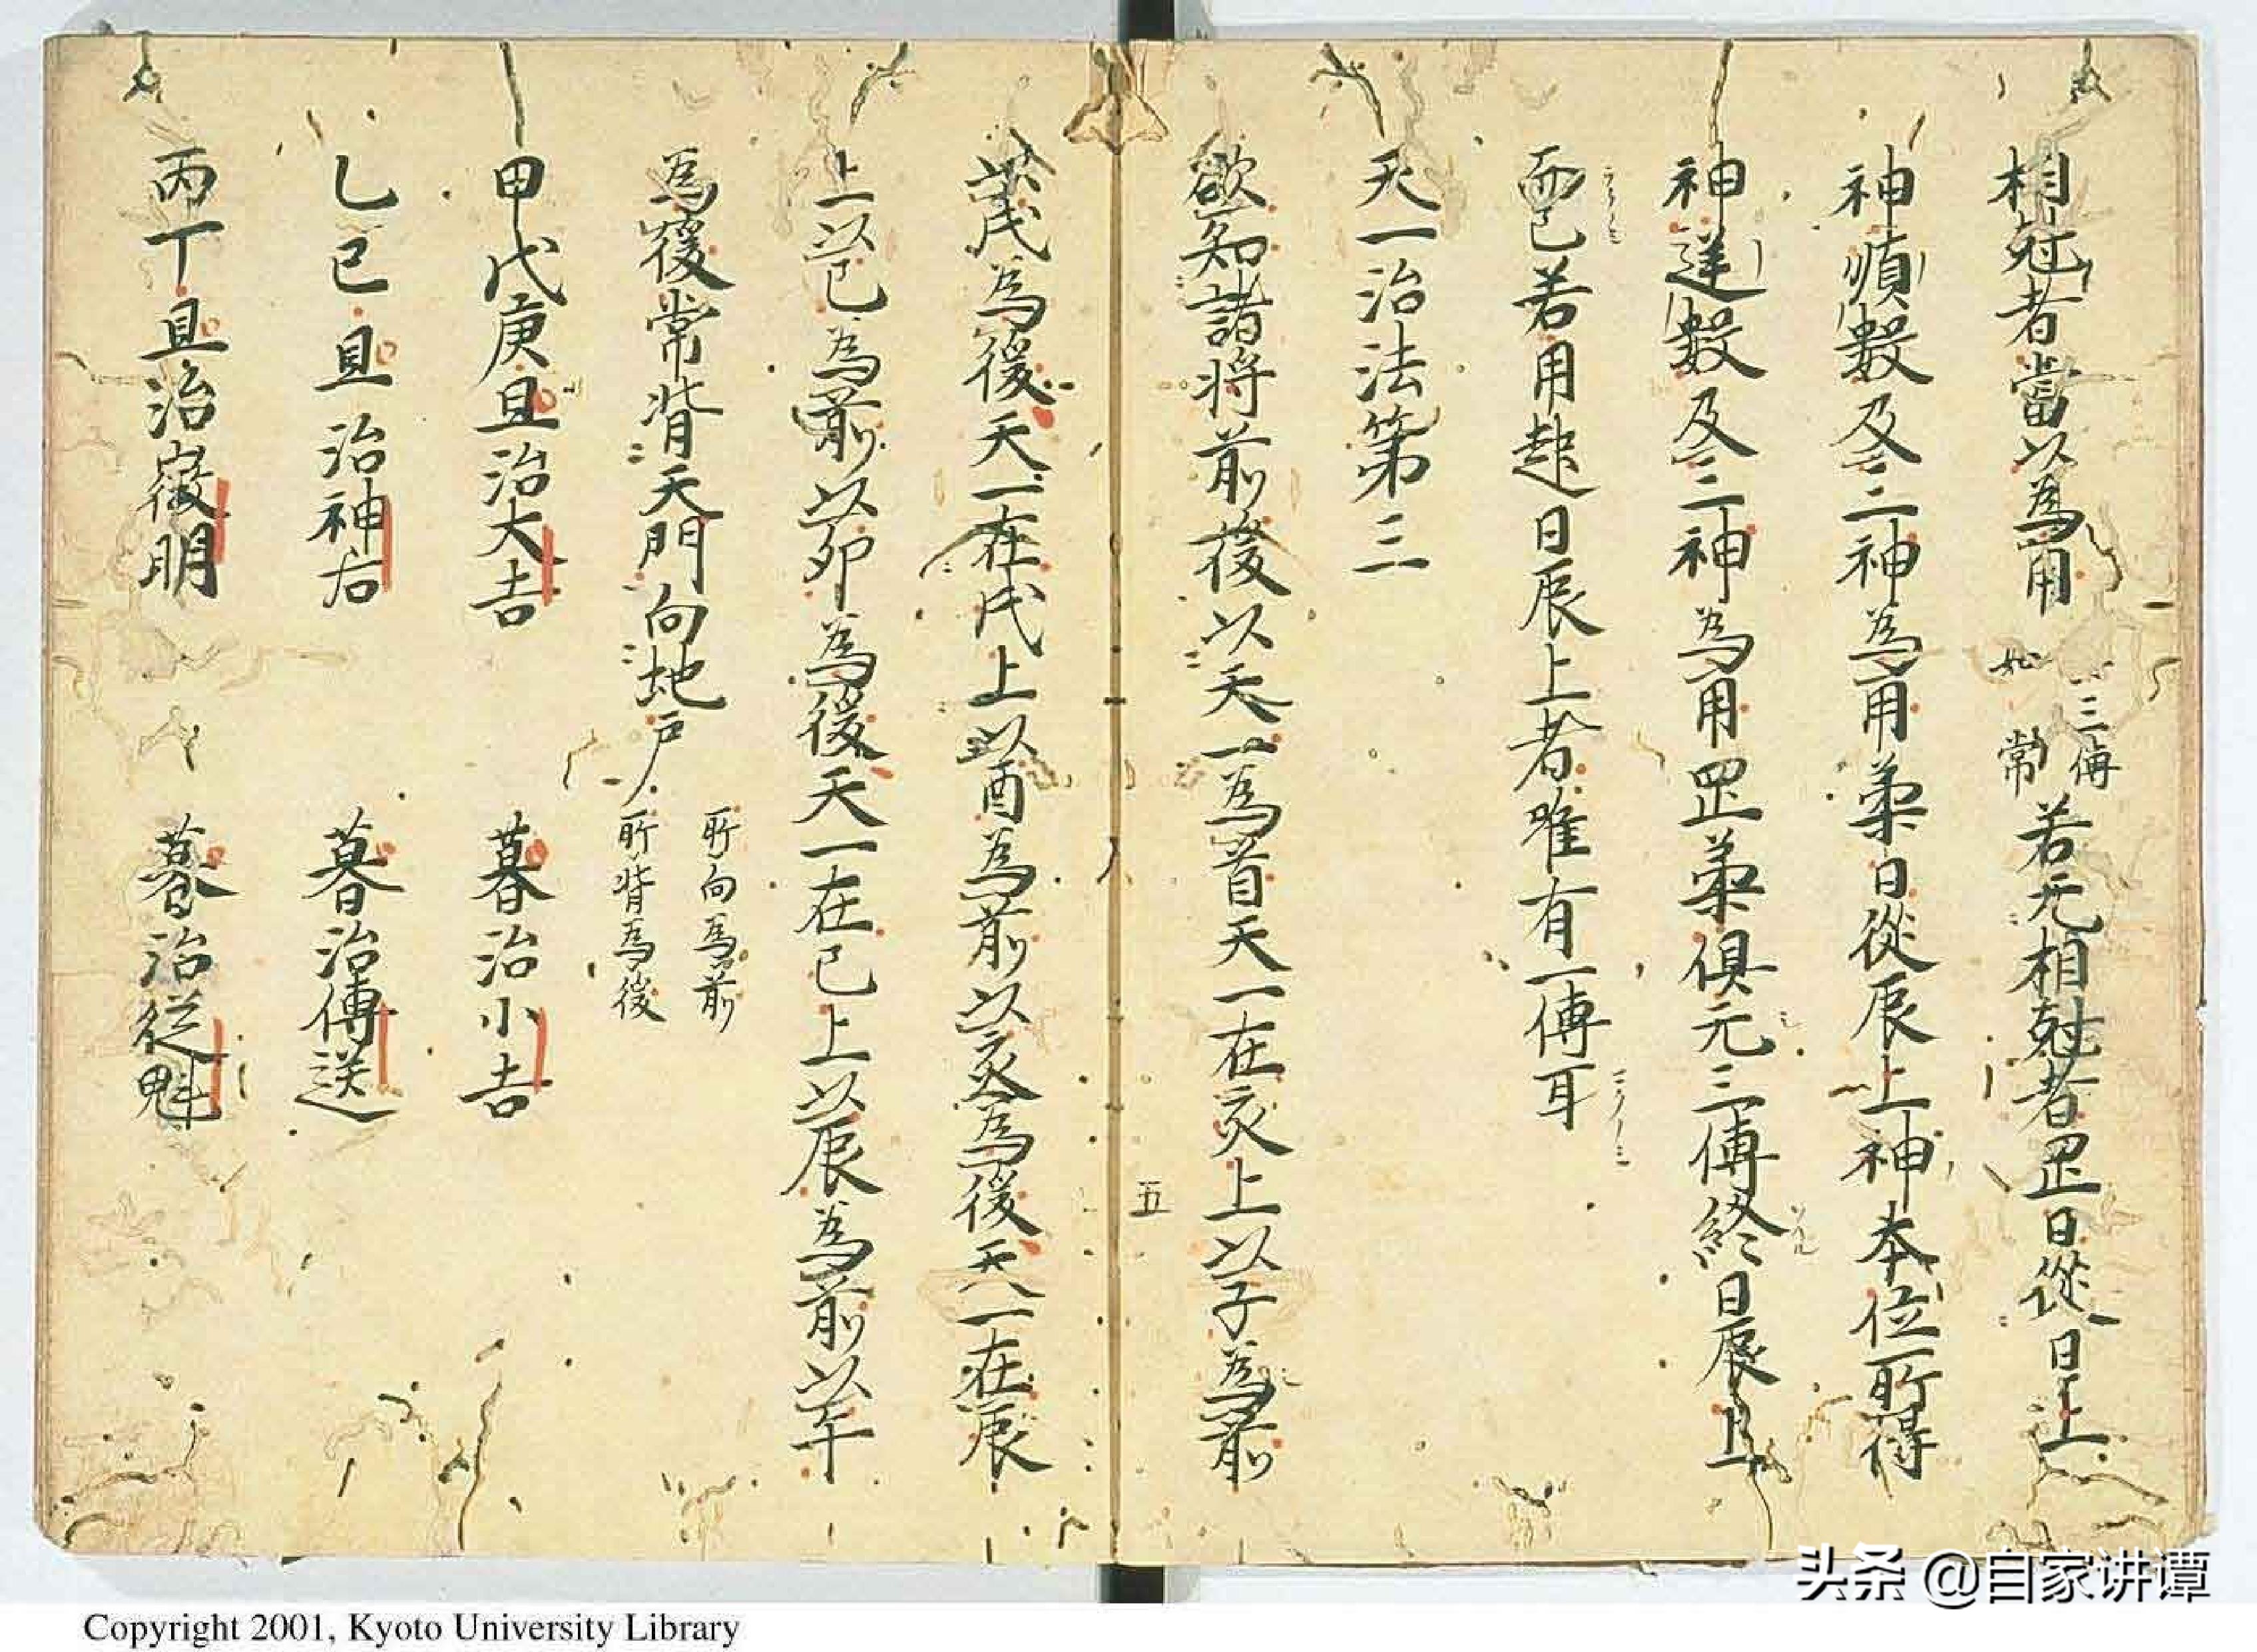 相尅者當以為用 如 三傳 常 若无相尅者罡日從日上
神順數及冬二神為用柔日從辰上神本位所得
神逆數及冬二神為用罡柔俱元三傳終日辰上
而已若用起日辰上者唯有一傳耳
天一治法第三
欲知諸将前後以天一為首天一在亥上以子為前
以戌為後天一在戌上以酉為前以亥為後天一在辰
上以巳為前以卯為後天一在巳上以辰為前以午
為後常背天門向地戸 所向為前 所背為後
甲戊庚旦治大吉 暮治小吉
乙己旦治神后 暮治傳送
丙丁旦治徴明 暮治従魁
五
头条 @自家讲谭
Copyright 2001, Kyoto University Library